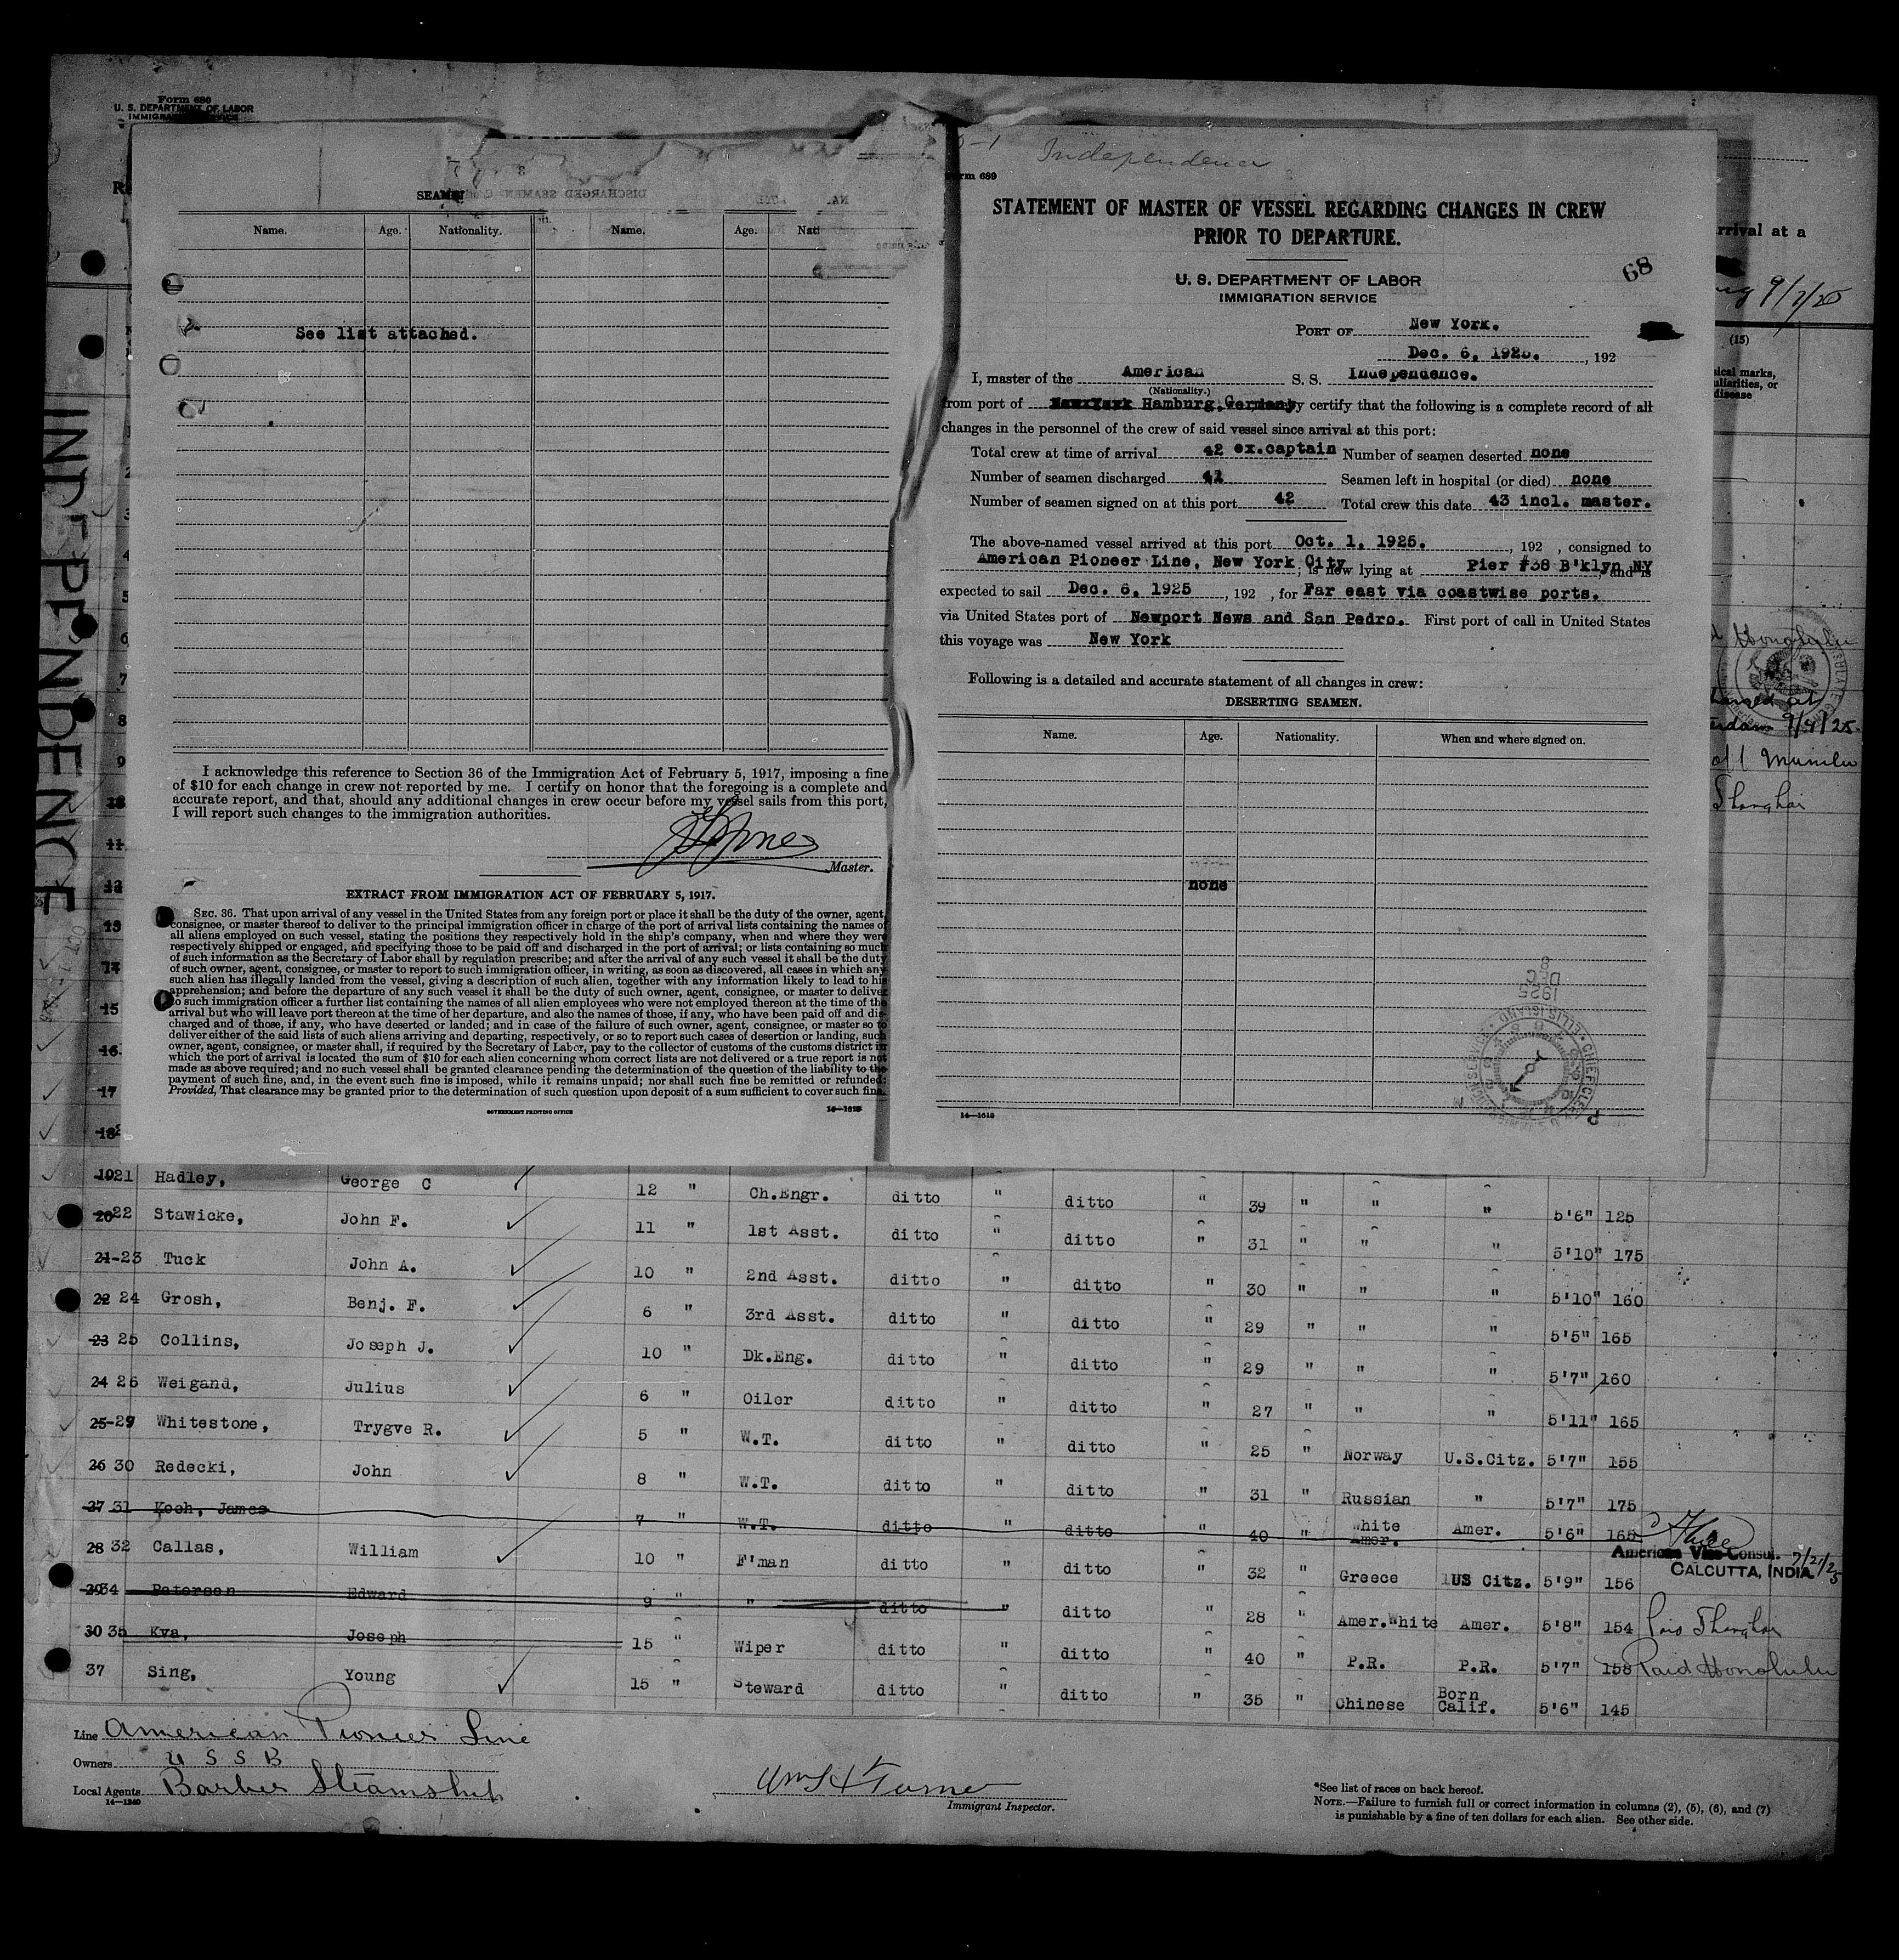 Form 680
U. S. DEPARTMENT OF LABOR
SEAMEN
DISCHARGED SEAMEN
Name. Age. Nationality. Name. Age. Nati
See list attached.
I acknowledge this reference to Section 36 of the Immigration Act of February 5, 1917, imposing a fine
of $10 for each change in crew not reported by me. I certify on honor that the foregoing is a complete and
accurate report, and that, should any additional changes in crew occur before my vessel sails from this port,
I will report such changes to the immigration authorities.
Master.
EXTRACT FROM IMMIGRATION ACT OF FEBRUARY 5, 1917.
SEC. 36. That upon arrival of any vessel in the United States from any foreign port or place it shall be the duty of the owner, agent,
consignee, or master thereof to deliver to the principal immigration officer in charge of the port of arrival lists containing the names of
all aliens employed on such vessel, stating the positions they respectively hold in the ship's company, when and where they were
respectively shipped or engaged, and specifying those to be paid off and discharged in the port of arrival; or lists containing so much
of such information as the Secretary of Labor shall by regulation prescribe; and after the arrival of any such vessel it shall be the duty
of such owner, agent, consignee, or master to report to such immigration officer, in writing, as soon as discovered, all cases in which any
such alien has illegally landed from the vessel, giving a description of such alien, together with any information likely to lead to his
apprehension; and before the departure of any such vessel it shall be the duty of such owner, agent, consignee, or master to deliver
to such immigration officer a further list containing the names of all alien employees who were not employed thereon at the time of the
arrival but who will leave port thereon at the time of her departure, and also the names of those, if any, who have been paid off and dis-
charged and of those, if any, who have deserted or landed; and in case of the failure of such owner, agent, consignee, or master so to
deliver either of the said lists of such aliens arriving and departing, respectively, or so to report such cases of desertion or landing, such
owner, agent, consignee, or master shall, if required by the Secretary of Labor, pay to the collector of customs of the customs district in
which the port of arrival is located the sum of $10 for each alien concerning whom correct lists are not delivered or a true report is not
made as above required; and no such vessel shall be granted clearance pending the determination of the question of the liability to the
payment of such fine, and, in the event such fine is imposed, while it remains unpaid; nor shall such fine be remitted or refunded:
Provided, That clearance may be granted prior to the determination of such question upon deposit of a sum sufficient to cover such fine.
GOVERNMENT PRINTING OFFICE 14—1613
INDEPENDENCE
Independence
Form 689
STATEMENT OF MASTER OF VESSEL REGARDING CHANGES IN CREW
PRIOR TO DEPARTURE.
U. S. DEPARTMENT OF LABOR
IMMIGRATION SERVICE
68
PORT OF New York.
Dec. 6, 1925. , 192
I, master of the American S. S. Independence.
(Nationality.)
from port of Hamburg, Germany certify that the following is a complete record of all
changes in the personnel of the crew of said vessel since arrival at this port:
Total crew at time of arrival 42 ex.captain Number of seamen deserted none
Number of seamen discharged 41 Seamen left in hospital (or died) none
Number of seamen signed on at this port 42 Total crew this date 43 incl. master.
The above-named vessel arrived at this port Oct. 1, 1925. , 192 , consigned to
American Pioneer Line, New York City ; is now lying at Pier #38 B'klyn NY , and is
expected to sail Dec. 6, 1925 , 192 , for Far east via coastwise ports.
via United States port of Newport News and San Pedro. First port of call in United States
this voyage was New York
Following is a detailed and accurate statement of all changes in crew:
DESERTING SEAMEN.
Name. Age. Nationality. When and where signed on.
none
1925 DEC 6
CHIEF CLERK ELLIS ISLAND
14—1613
arrival at a
9/2/25
(15)
disease
Honolulu
9/4/25
Shanghai
5
6
7
8
9
10
11
12
13
14
15
16
17
18
19 21 Hadley, George C 12 " Ch.Engr. ditto " ditto " 39 " " " 5'6" 125
20 22 Stawicke, John F. 11 " 1st Asst. ditto " ditto " 31 " " " 5'10" 175
21-23 Tuck John A. 10 " 2nd Asst. ditto " ditto " 30 " " " 5'10" 160
22 24 Grosh, Benj. F. 6 " 3rd Asst. ditto " ditto " 29 " " " 5'5" 165
23 25 Collins, Joseph J. 10 " Dk.Eng. ditto " ditto " 29 " " " 5'7" 160
24 26 Weigand, Julius 6 " Oiler ditto " ditto " 27 " " " 5'11" 165
25-29 Whitestone, Trygve R. 5 " W.T. ditto " ditto " 25 " Norway U.S.Citz. 5'7" 155
26 30 Redecki, John 8 " W.T. ditto " ditto " 31 " Russian " 5'7" 175
27 31 Koch, James 7 " W.T. ditto " ditto " 40 " White Amer. Amer. 5'6" 165
American Vice Consul.
CALCUTTA, INDIA.
28 32 Callas, William 10 " F'man ditto " ditto " 32 " Greece US Citz. 5'9" 156
29 34 Peterson Edward 9 " " ditto " ditto " 28 " Amer.White Amer. 5'8" 154 Shanghai
30 35 Kva, Joseph 15 " Wiper ditto " ditto " 40 " P.R. P.R. 5'7" 158 Paid Honolulu
37 Sing, Young 15 " Steward ditto " ditto " 35 " Chinese Born Calif. 5'6" 145
Line American Pioneer Line
Owners U S S B
Local Agents Barber Steamship
14—1240
Immigrant Inspector.
*See list of races on back hereof.
NOTE.—Failure to furnish full or correct information in columns (2), (5), (6), and (7)
is punishable by a fine of ten dollars for each alien. See other side.